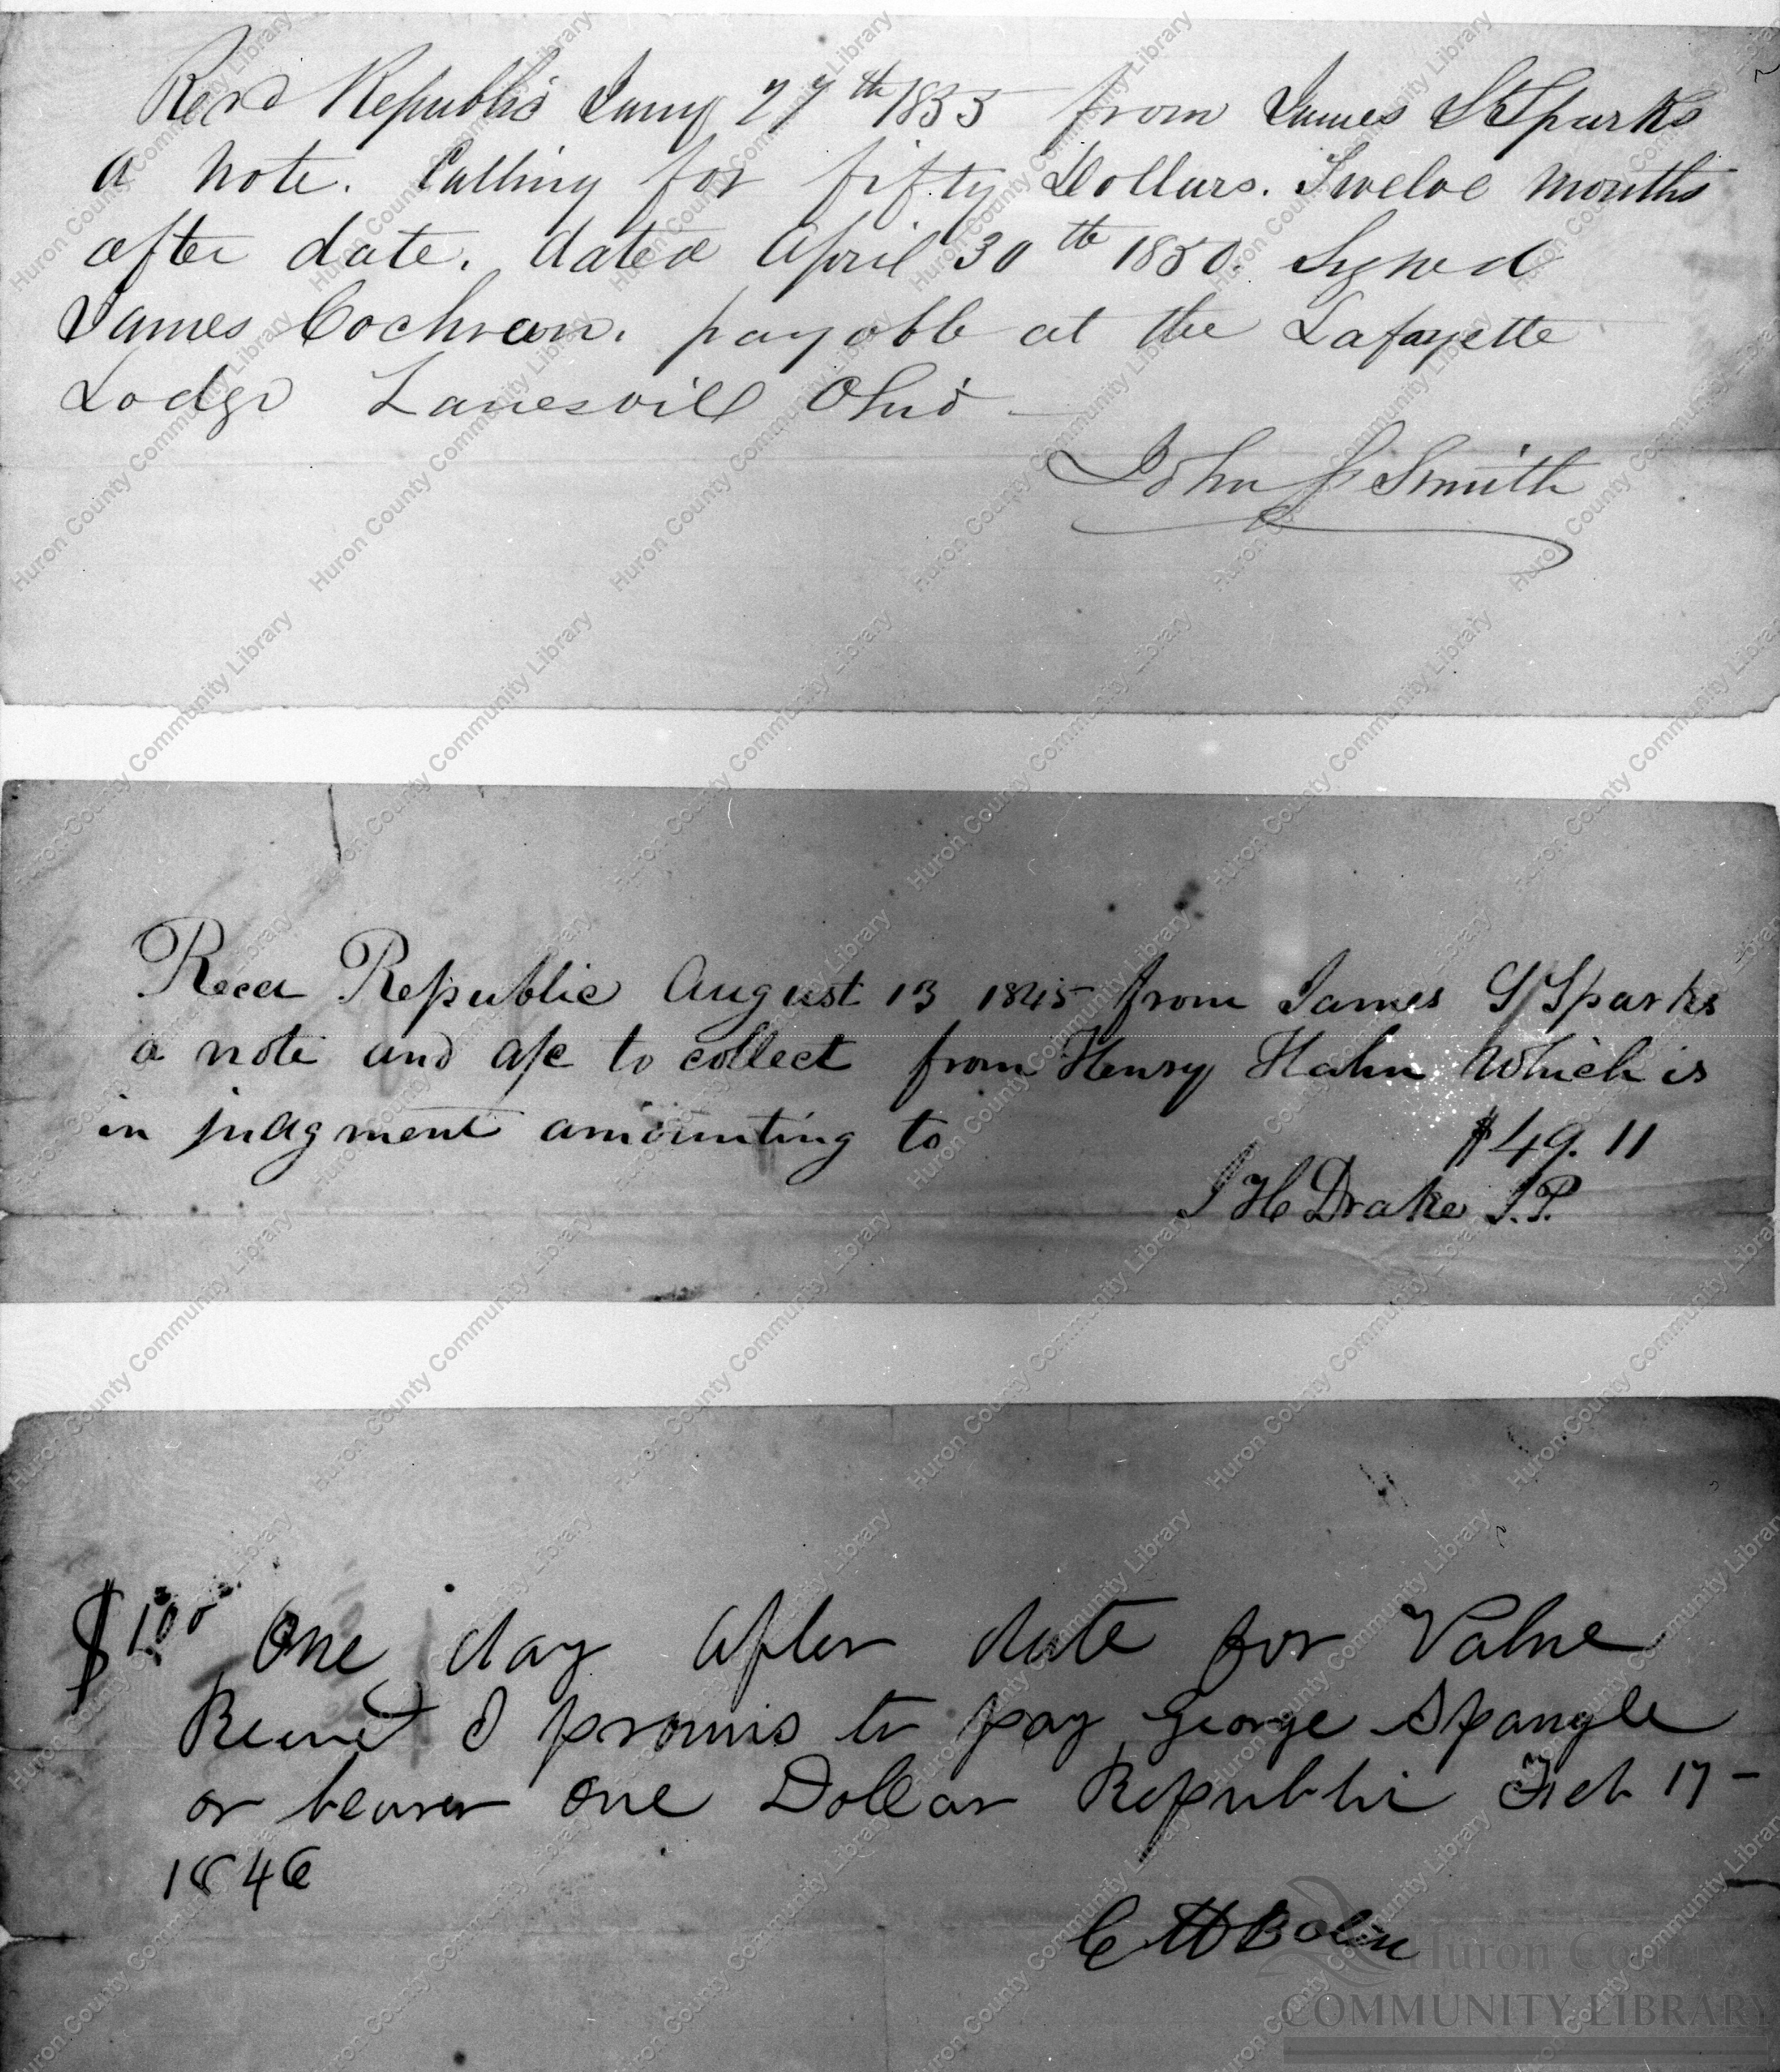 Recd Republic Jany 27th 1855 from James S Sparks
a note. Calling for fifty Dollars. Twelve months
after date. dated April 30th 1850. Signed
James Cochran. payable at the Lafayette
Lodge Zanesvill Ohio
John J Smith
Recd Republic August 13 1845 from James S Sparks
a note and a/c to collect from Henry Hahn Which is
in judgment amounting to
$49.11
J H Drake J.P.
$1.00 One day after date for Value
Receivd I promis to pay George Spangle
or bearer one Dollar Republic Feb 17
1846
C H Bolin
Huron County
COMMUNITY LIBRARY
Huron County Community Library